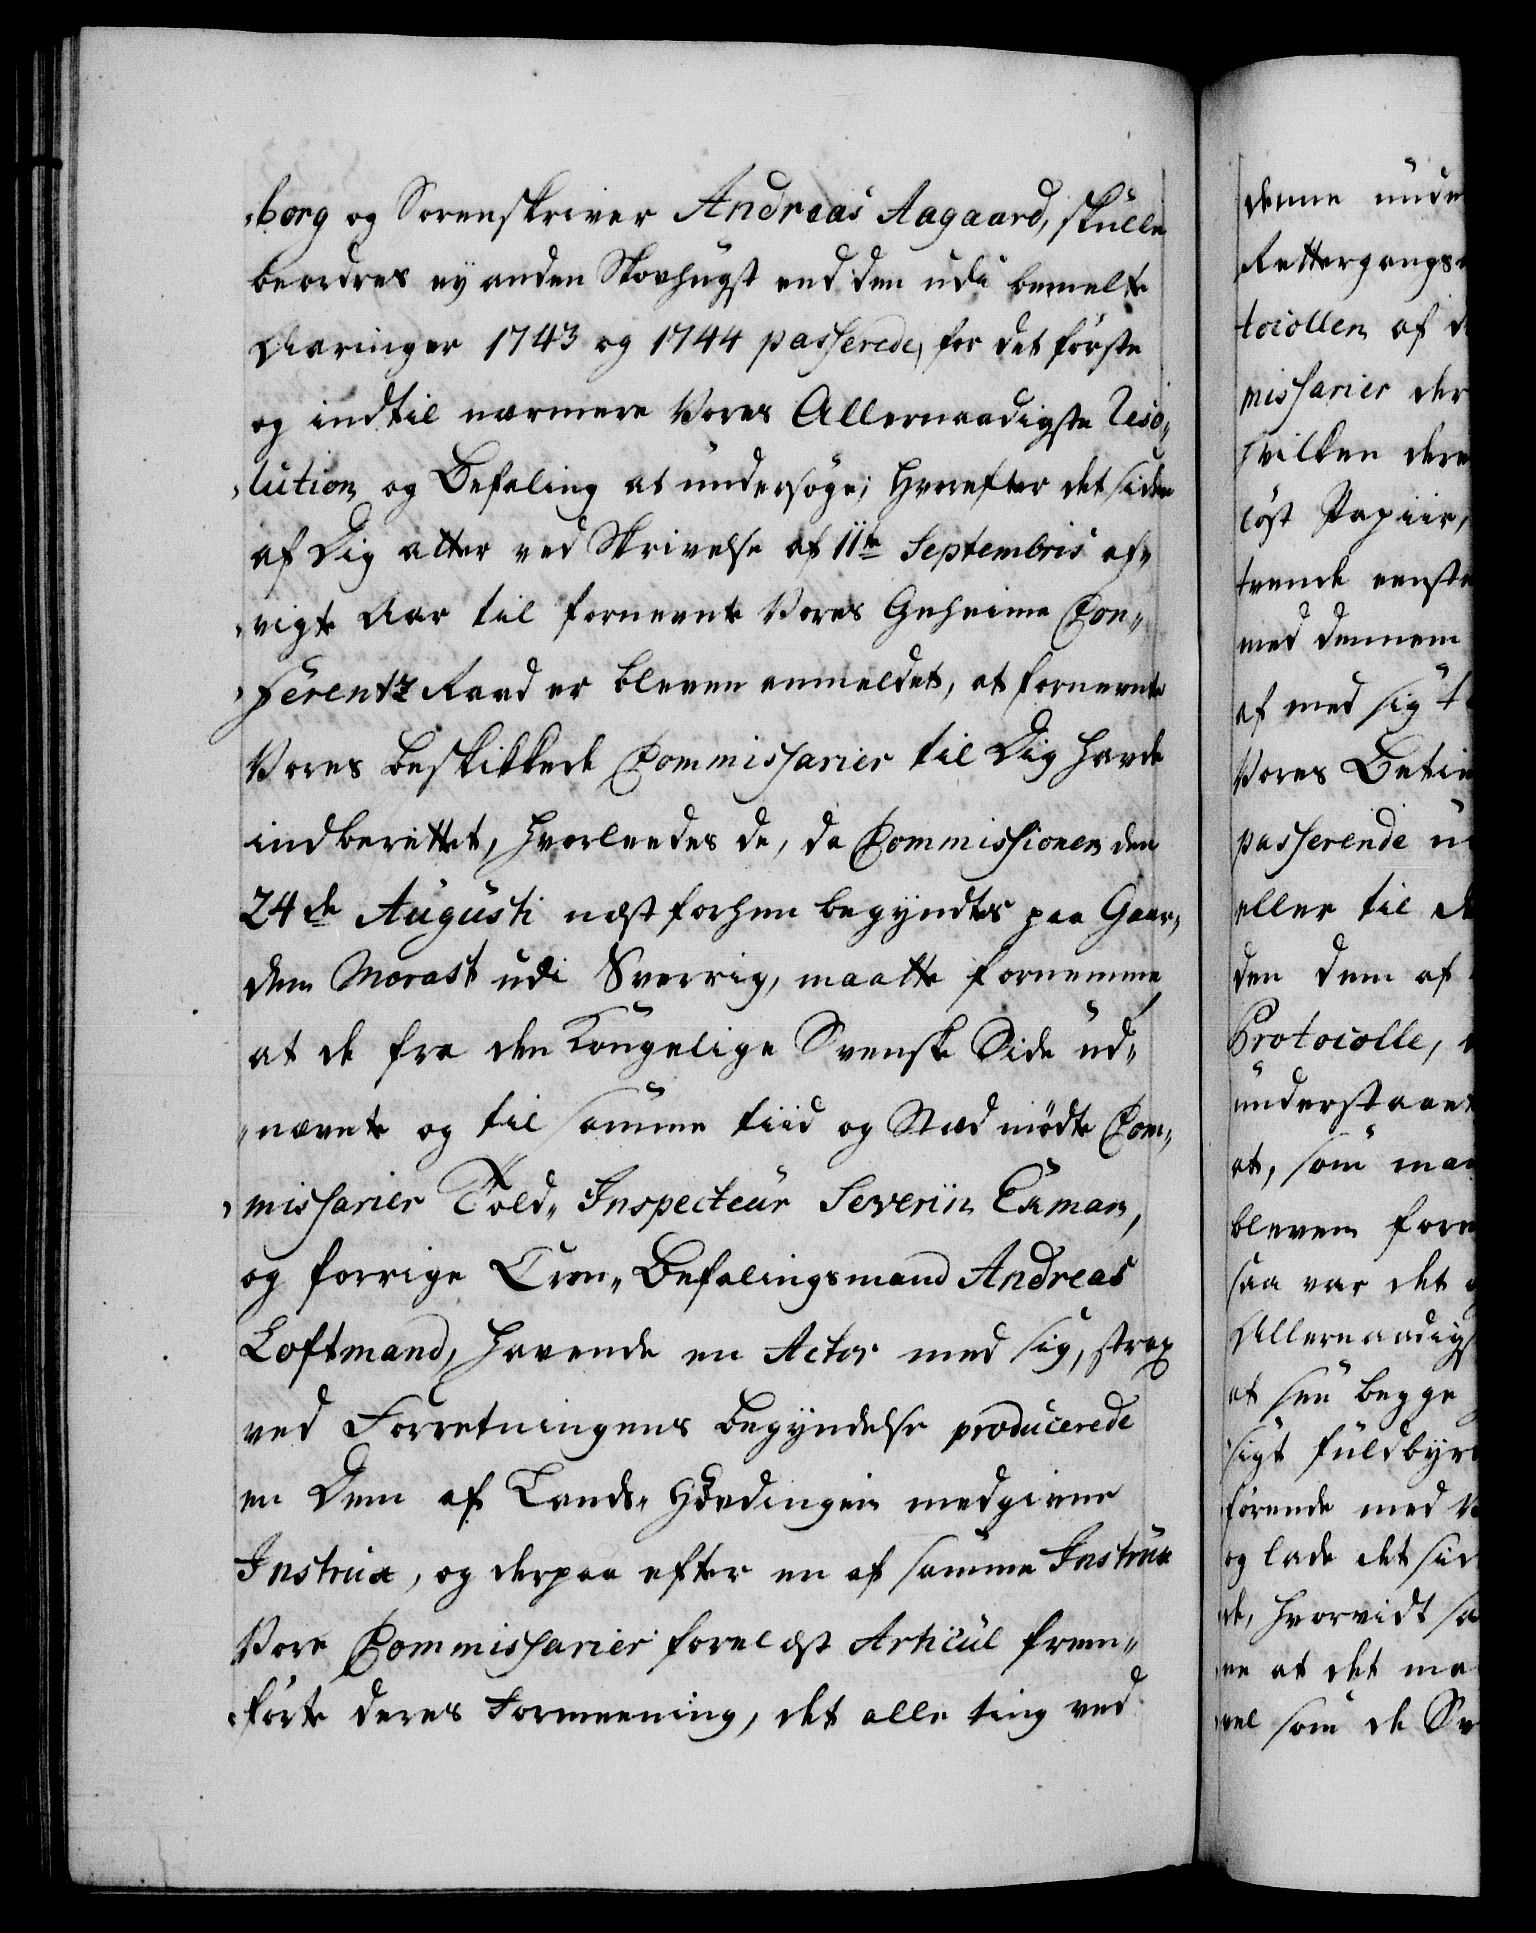 „borg og Sorenskriver Andreas Aagaard, skulle
beordres ey anden Skovhugst end den udi bemelte
Aaringer 1743 og 1744 passerede, for det første
og indtil nærmere Vores Allernaadigste Reso„
„lution og Befaling at undersøge; Hvorefter det siden
af Dig atter ved Skrivelse af 11te Septembris af„
„vigte Aar til fornevnte Vores Geheime Con„
„ferentz Raad er bleven anmeldet, at fornevnte
Vores beskikkede Commissarier til Dig havde
indberettet, hvorleedes de, da Commissionen den
24de Augusti næst forhen begyndtes paa Gaar„
den Morast udi Sverrig, maatte fornemme
at de fra den Kongelige Svenske Side ud„
„nævnte og til samme tiid og Stæd mødte Com„
„missarier Told„ Inspecteur Severin Ekman,
og forrige Cron„ Befalingsmand Andreas
Loftmand, havende en Actor med sig, strax
ved Forretningens begyndelse producerede
en Dem af Lands„ Høvdingen medgivne
Instrux, og derpaa efter en af samme Instrux
Vore Commissarier forelæst Articul frem„
„førte deres Formeening, det alle ting ved
denne unde
Rettergangs
tocollen af d
missarier der
hvilken der
løst Papiir,
tvende eenst
med dennem
af med sig t
Vores Betie
passerende u
eller til d
den dem af
Protocolle,
understaaet
at, som man
bleven for
saa var det
Allernaadigst
at see begge
sigt fuldbyr
førende med V
og lade det sid
de, hvorvidt sa
ne at det ma
vel som de Sv